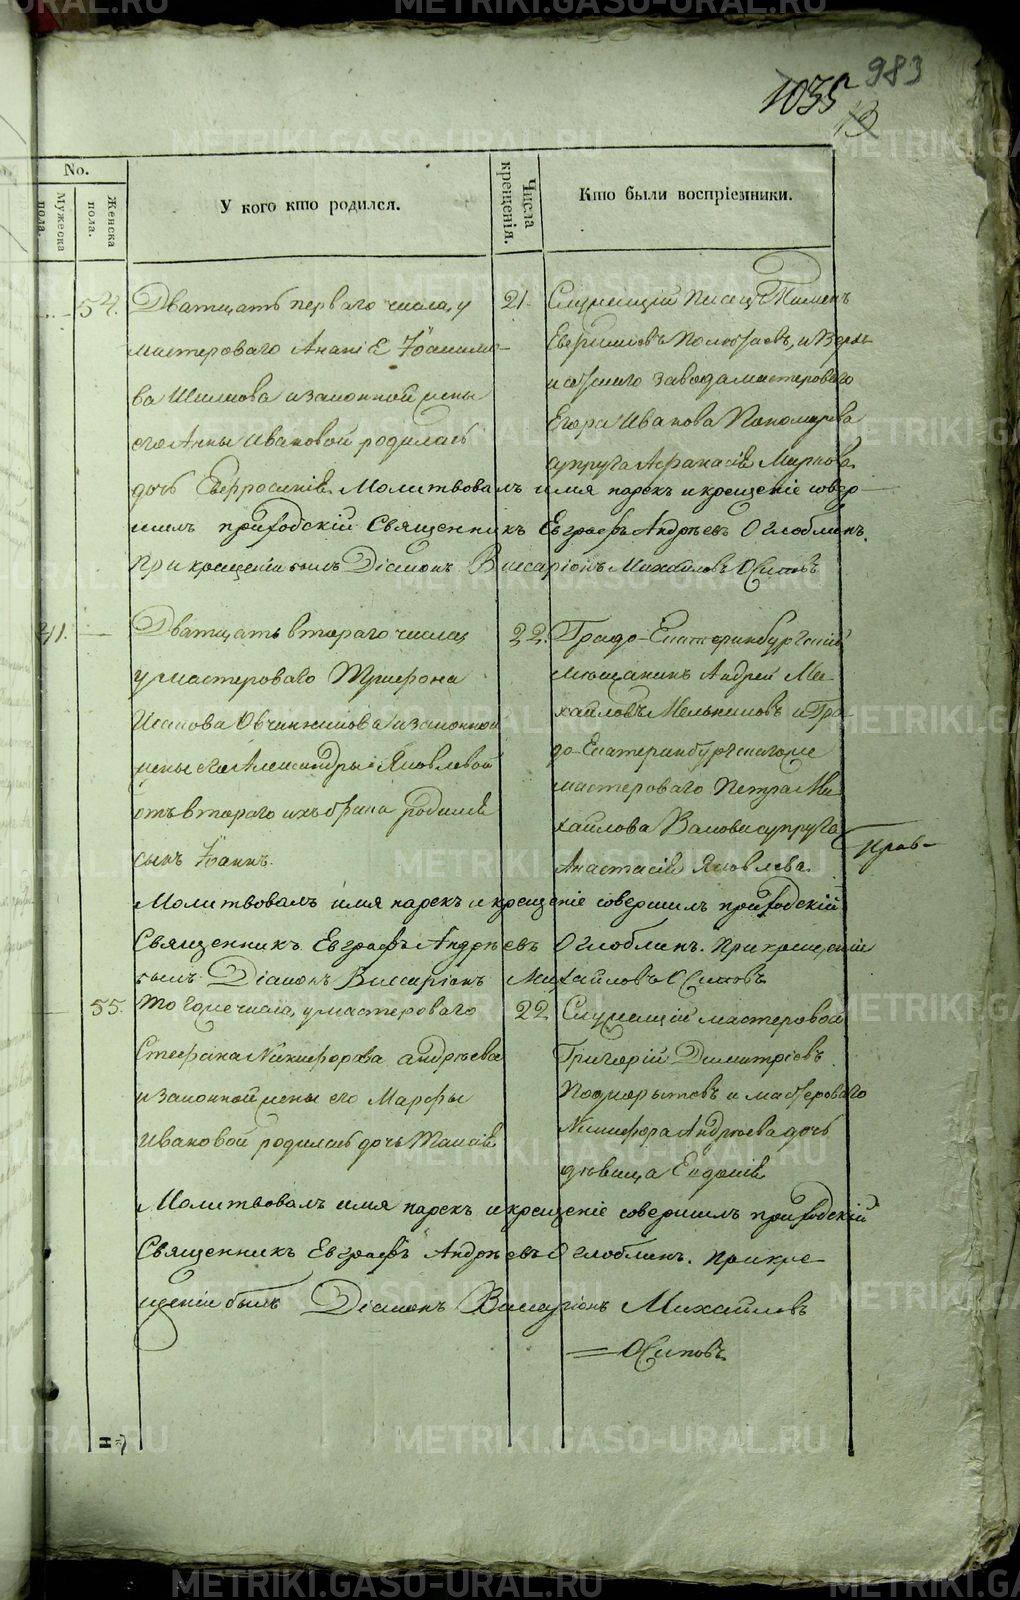 983
1035
13
No.
Мужеска пола.
Женска пола.
У кого кто родился.
Числа крещенія.
Кто были воспріемники.
54. Дватцать перваго числа, у
мастероваго Ананіе Іоанно-
ва Шилкова и законной жены
его Анны Ивановой родилась
21. Служащій писецъ Пименъ
Полюбаевъ, и Верхъ-
исетскаго завода мастероваго
Егора Иванова Пономарева
супруга Афанасія Маркова
дочь Евфросинія. Молитвовалъ имя нарекъ и крещеніе совер-
шилъ приходскій Священникъ Евграфъ Андреевъ Оглоблинъ.
При крещеніи былъ Діаконъ Виссаріонъ Михайловъ Осиповъ
41. Дватцать втораго числа,
у мастероваго Трифона
Исакова Овчинникова и законной
жены его Александры Яковлевой
отъ втораго ихъ брака родился
сынъ Іоаннъ.
22. Градо-Екатеринбургскій
мещанинъ Андрей Ми-
хайловъ Мельниковъ и Гра-
до-Екатеринбургскагоже
мастероваго Петра Ми-
хайлова супруга
Анастасія Яковлева.
Молитвовалъ имя нарекъ и крещеніе совершилъ приходскій
Священникъ Евграфъ Андреевъ Оглоблинъ. При крещеніи
былъ Діаконъ Виссаріонъ Михайловъ Осиповъ
55. Того же числа, у мастероваго
Стефана Никифорова Андреева
и законной жены его Марфы
Ивановой родилась дочь Таисія
22 Служащій мастеровой
Григорій Димитріевъ
Подкорытовъ и мастероваго
Никифора Андреева дочь
девица Евдокія
Молитвовалъ имя нарекъ и крещеніе совершилъ приходскій
Священникъ Евграфъ Андреевъ Оглоблинъ. При кре-
щеніи былъ Діаконъ Виссаріонъ Михайловъ
Осиповъ
METRIKI.GASO-URAL.RU